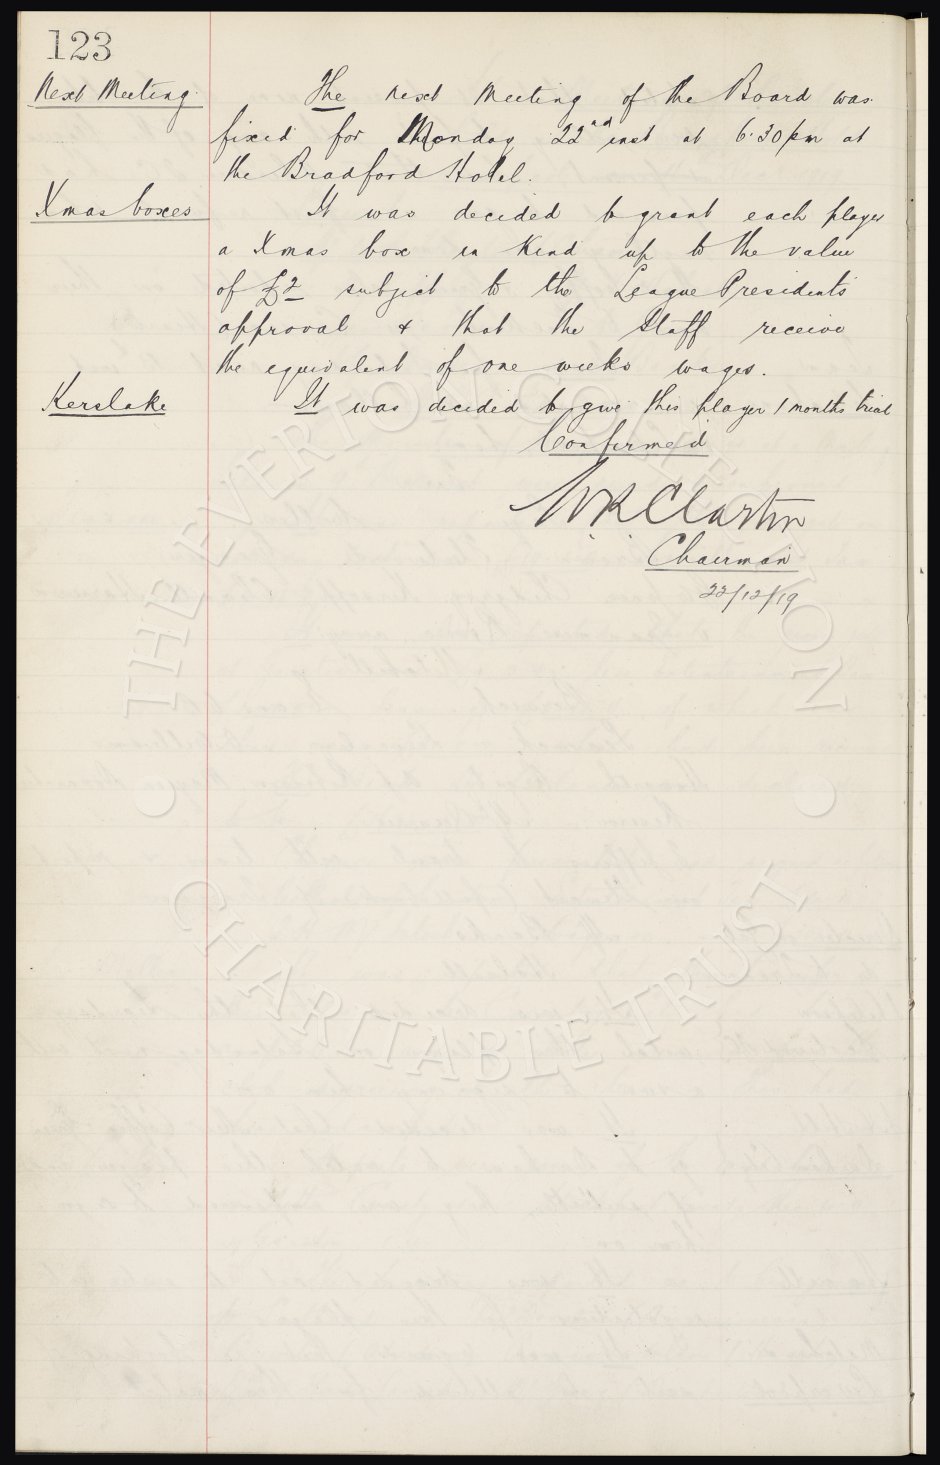 123
Next Meeting
The next meeting of the Board was
fixed for Monday 22nd inst at 6.30pm at
the Bradford Hotel.
Xmas boxes
It was decided to grant each player
a Xmas box in kind up to the value
of £2 subject to the League Presidents
approval & that the staff receive
the equivalent of one weeks wages.
Kerslake
It was decided to give this player 1 months trial
Confirmed
W R Clayton
Chairman
22/12/19
THE EVERTON COLLECTION
CHARITABLE TRUST